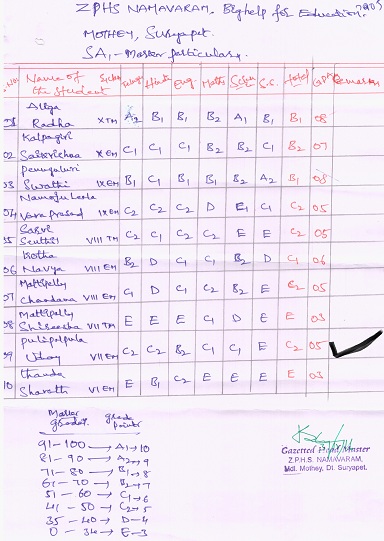 ZPHS NAMAVARAM, Big help for Education.
MOTHEY, Suryapet.
SA1 - Master particulars.
S.No. Name of the Student Telugu Hindi Eng Maths Science S.S. Total GPA Remarks
Radha X TM A2 B1 B1 B2 A1 B1 B1 08
02 X EM C1 C1 C1 B2 B2 C1 B2 07
03 Swathi IX EM B1 C1 B1 B1 B2 A2 B1 08
04 Vara Prasad IX EM C2 C2 C2 D E C1 C2 05
05 VIII TM C2 C2 C2 C2 E E C2 05
06 Kotha Navya VIII EM B2 D C1 C1 B2 D C1 06
07 Mattipelly Chandana VIII EM C1 D C1 C2 B2 E C2 05
08 Mattipelly Shireesha VII TM E E E C1 D E E 03
09 Uday VII EM C2 C2 B2 C1 C1 E C2 05
10 Thanda Sharath VI EM E B1 C2 E E E E 03
Marks grade points
91-100 → A1 → 10
81-90 → A2 → 9
71-80 → B1 → 8
61-70 → B2 → 7
51-60 → C1 → 6
41-50 → C2 → 5
35-40 → D-4
0-34 → E-3
Gazetted Head Master
Z.P.H.S. NAMAVARAM,
Mdl. Mothey, Dt. Suryapet.